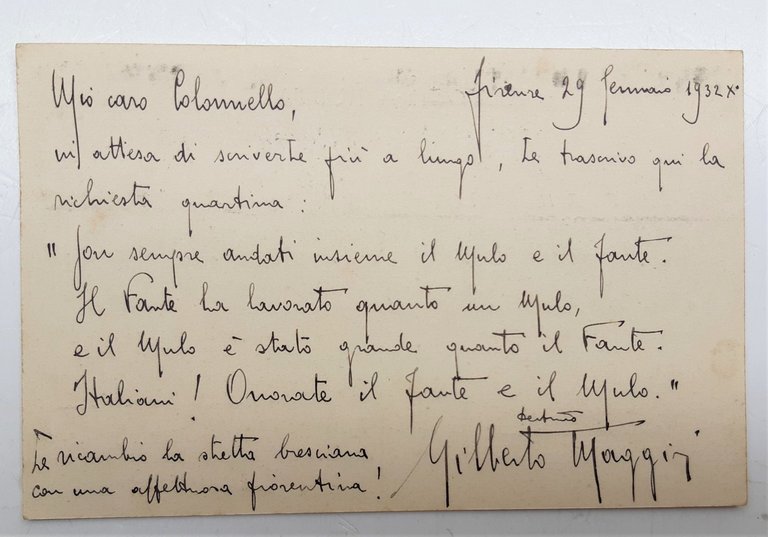 Mio caro Colonnello, Firenze 29 Gennaio 1932 X°
in attesa di scriverte più a lungo, te trascrivo qui la
richiesta quartina:
"Son sempre andati insieme il Mulo e il Fante.
Il Fante ha lavorato quanto un Mulo,
e il Mulo è stato grande quanto il Fante.
Italiani! Onorate il fante e il Mulo."
Te ricambio la stretta bresciana
con una affettuosa fiorentina!
Gilberto Maggi